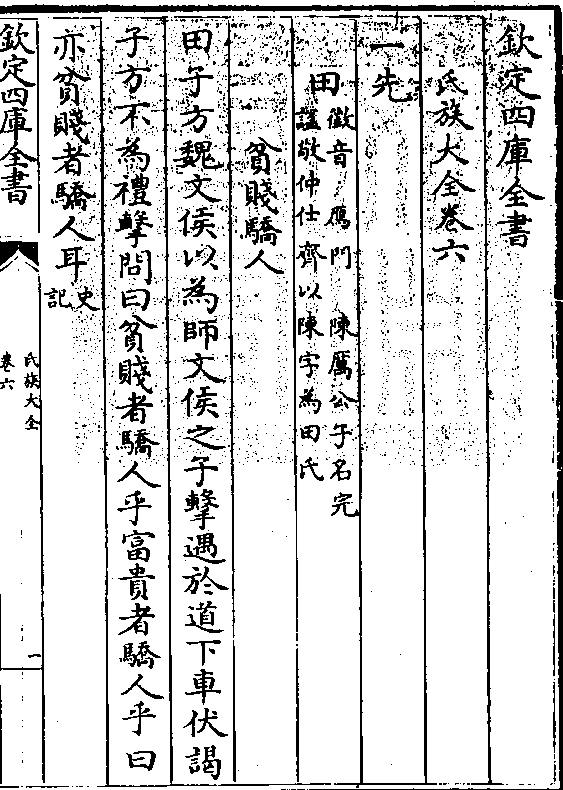 欽定四庫全書
氏族大全卷六
一先
田徵音 鴈門 陳厲公子名完
謚敬仲仕齊以陳字為田氏
貧賤驕人
田子方魏文侯以為師文侯之子擊遇於道下車伏謁
子方不為禮擊問曰貧賤者驕人乎富貴者驕人乎曰
亦貧賤者驕人耳史記
欽定四庫全書
氏族大全
卷六
一